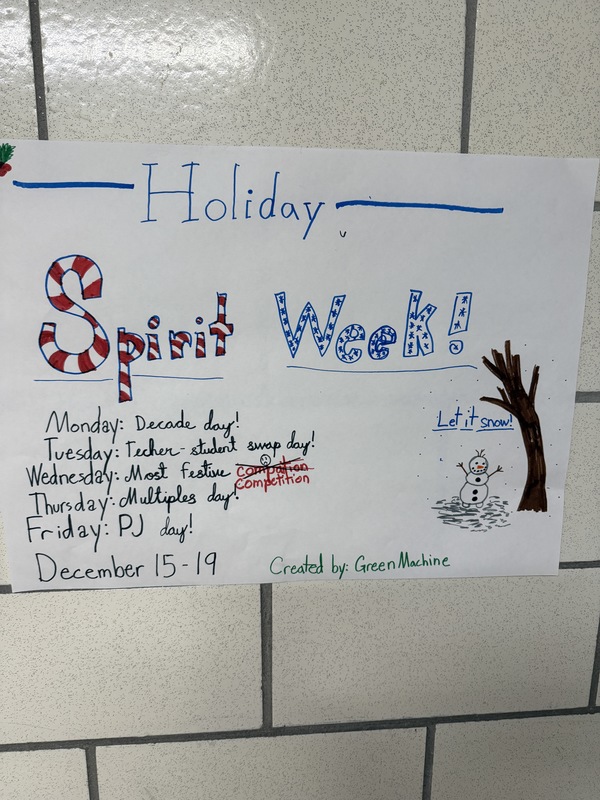 Holiday
Spirit Week!
Monday: Decade day!
Tuesday: Techer-student swap day!
Wednesday: Most Festive competition
Thursday: Multiples day!
Friday: PJ day!
December 15-19
Created by: Green Machine
Let it snow!